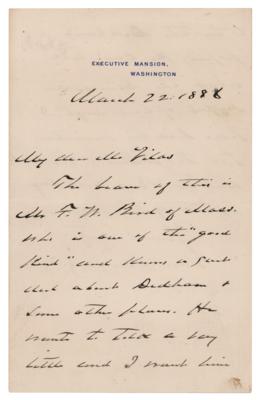 EXECUTIVE MANSION,
WASHINGTON
March 22. 1888
My dear Mr Vilas
The bearer of this is
Mr F. W. Bird of Mass.
who is one of the "good
kind" and knows a great
deal about Dedham &
some other places. He
wants to talk a very
little and I want him